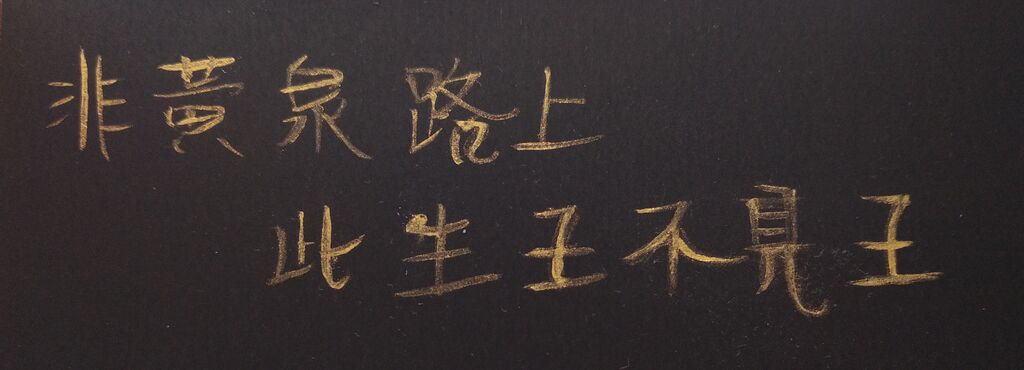 非黃泉路上
此生王不見王